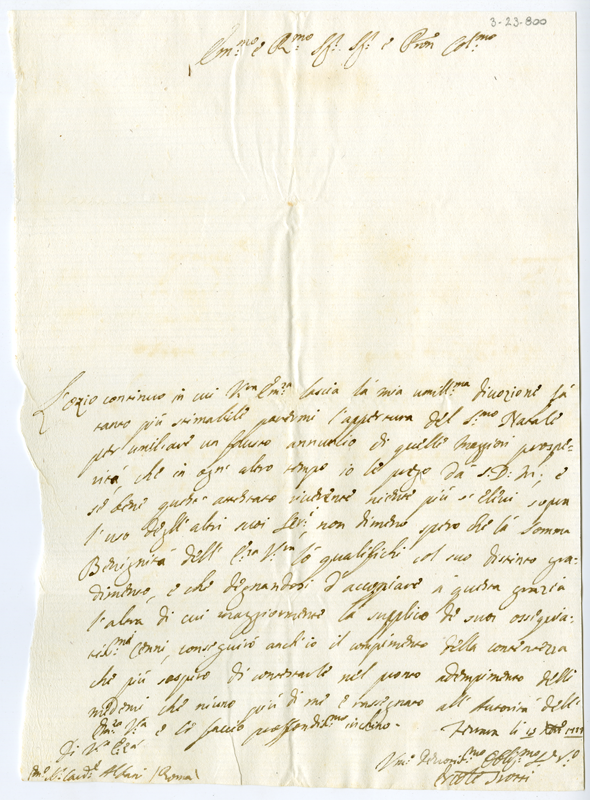 3-23-800
Em:mo e R:mo Sig: Sig: e Pron Col:mo
L'ozio continuo in cui V:ra Em:za lascia la mia umill:ma divozione fà
tanto più stimabile parermi l'appertura del S:mo Natale
per umiliare un fausto annunzio di quelle maggiori prospe-
rità, che in ogni altro tempo io le prego da S: D: M:, e
se bene questo attestato riverente niente più si elevi sopra
l'uso degl'altri suoi Ser:i, non dimeno spero che la somma
Benignità dell' E:za V:ra lo qualifichi col suo distinto gra-
dimento, e che degnandosi d'accoppiare a questa grazia
l'altra di cui maggiormente la supplico de suoi ossequia-
tis:mi Cenni, conseguirò anch'io il compimento della contentezza
che più sospiro di contestarle nel pronto adempimento delli
medemi che niuno più di me è rassegnato all' Autorità dell'
Em:za V:ra e le faccio profondis:mo inchino.
Di V:ra E:za
Ferrara li 15
Um: Devotis:mo Obblig:mo Se V:o
Em: S: Card:e Aldovrandi (Roma)